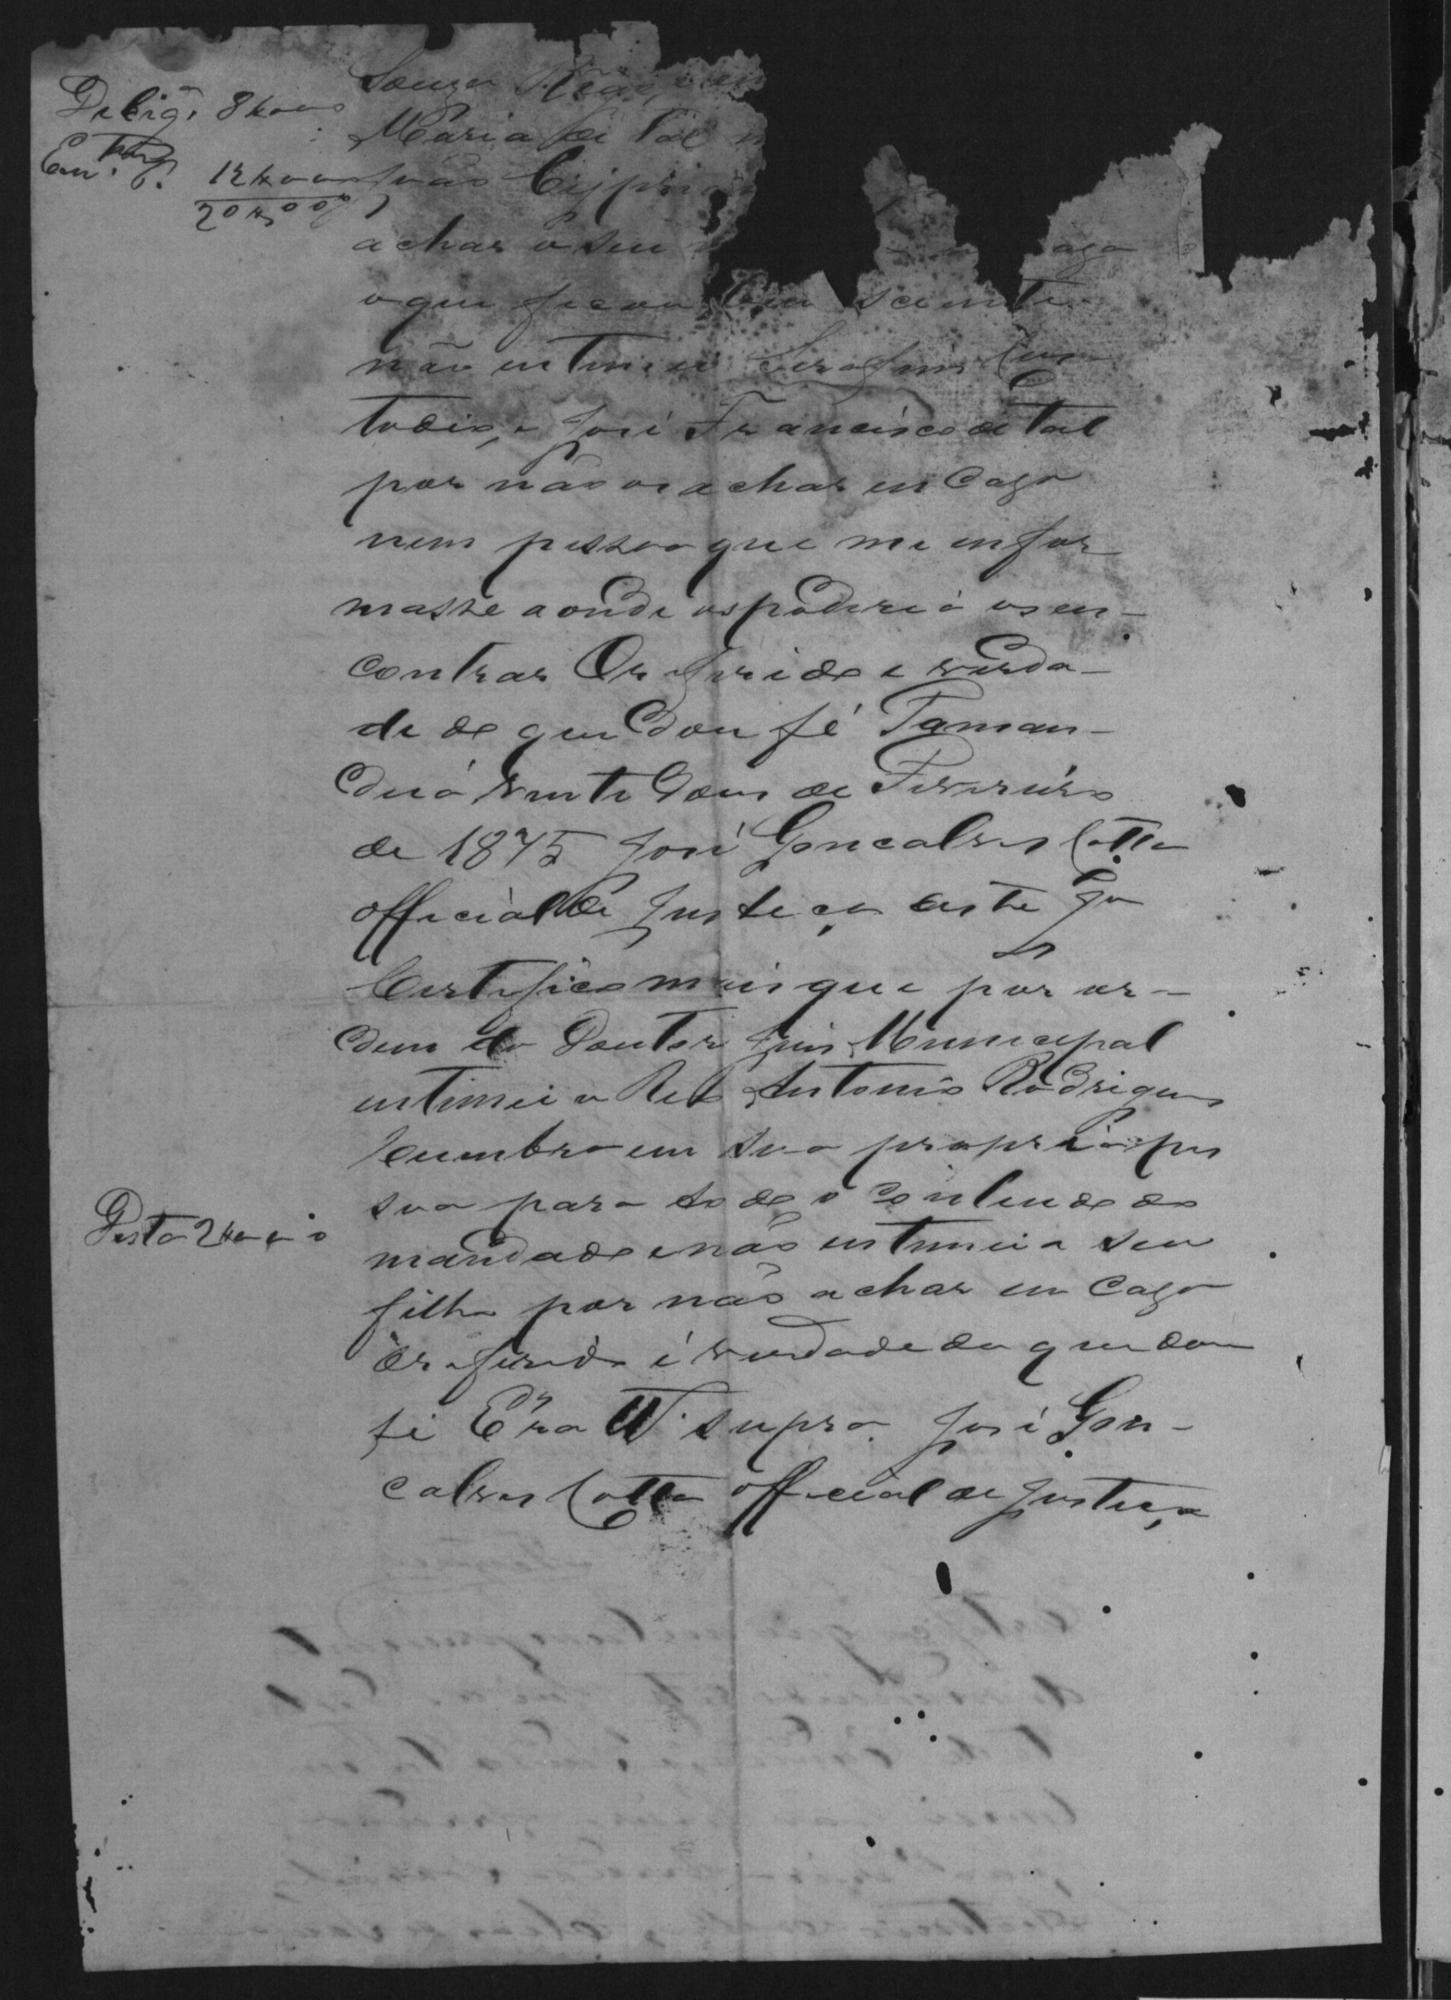 Delig.ª 8$000
12$000
20$000
Souza
Maria de Tal
João Cypri
achar o seu
o que ficou bem sciente
não intimei Serafim Cus-
todio, e José Francisco de Tal
por não os achar em caza
nem pessoa que me infor
masse aonde os poderiá os en-
contrar O referido e verda-
de do que dou fé Taman-
duá vinte dous de Fevereiro
de 1875 José Goncalves Cotta
official de Justiça deste Ju
Certifico mais que por or-
dem do Doutor Juis Municipal
intimei o Reo Antonio Rodrigues
Coimbra em sua propria pes
soa para todo o contendo do
mandado e não intimei a seu
filho por não achar em caza
O referido é verdade do que dou
fé Era Ut supra José Gon-
calves Cotta official de Justiça
Desta 2$000